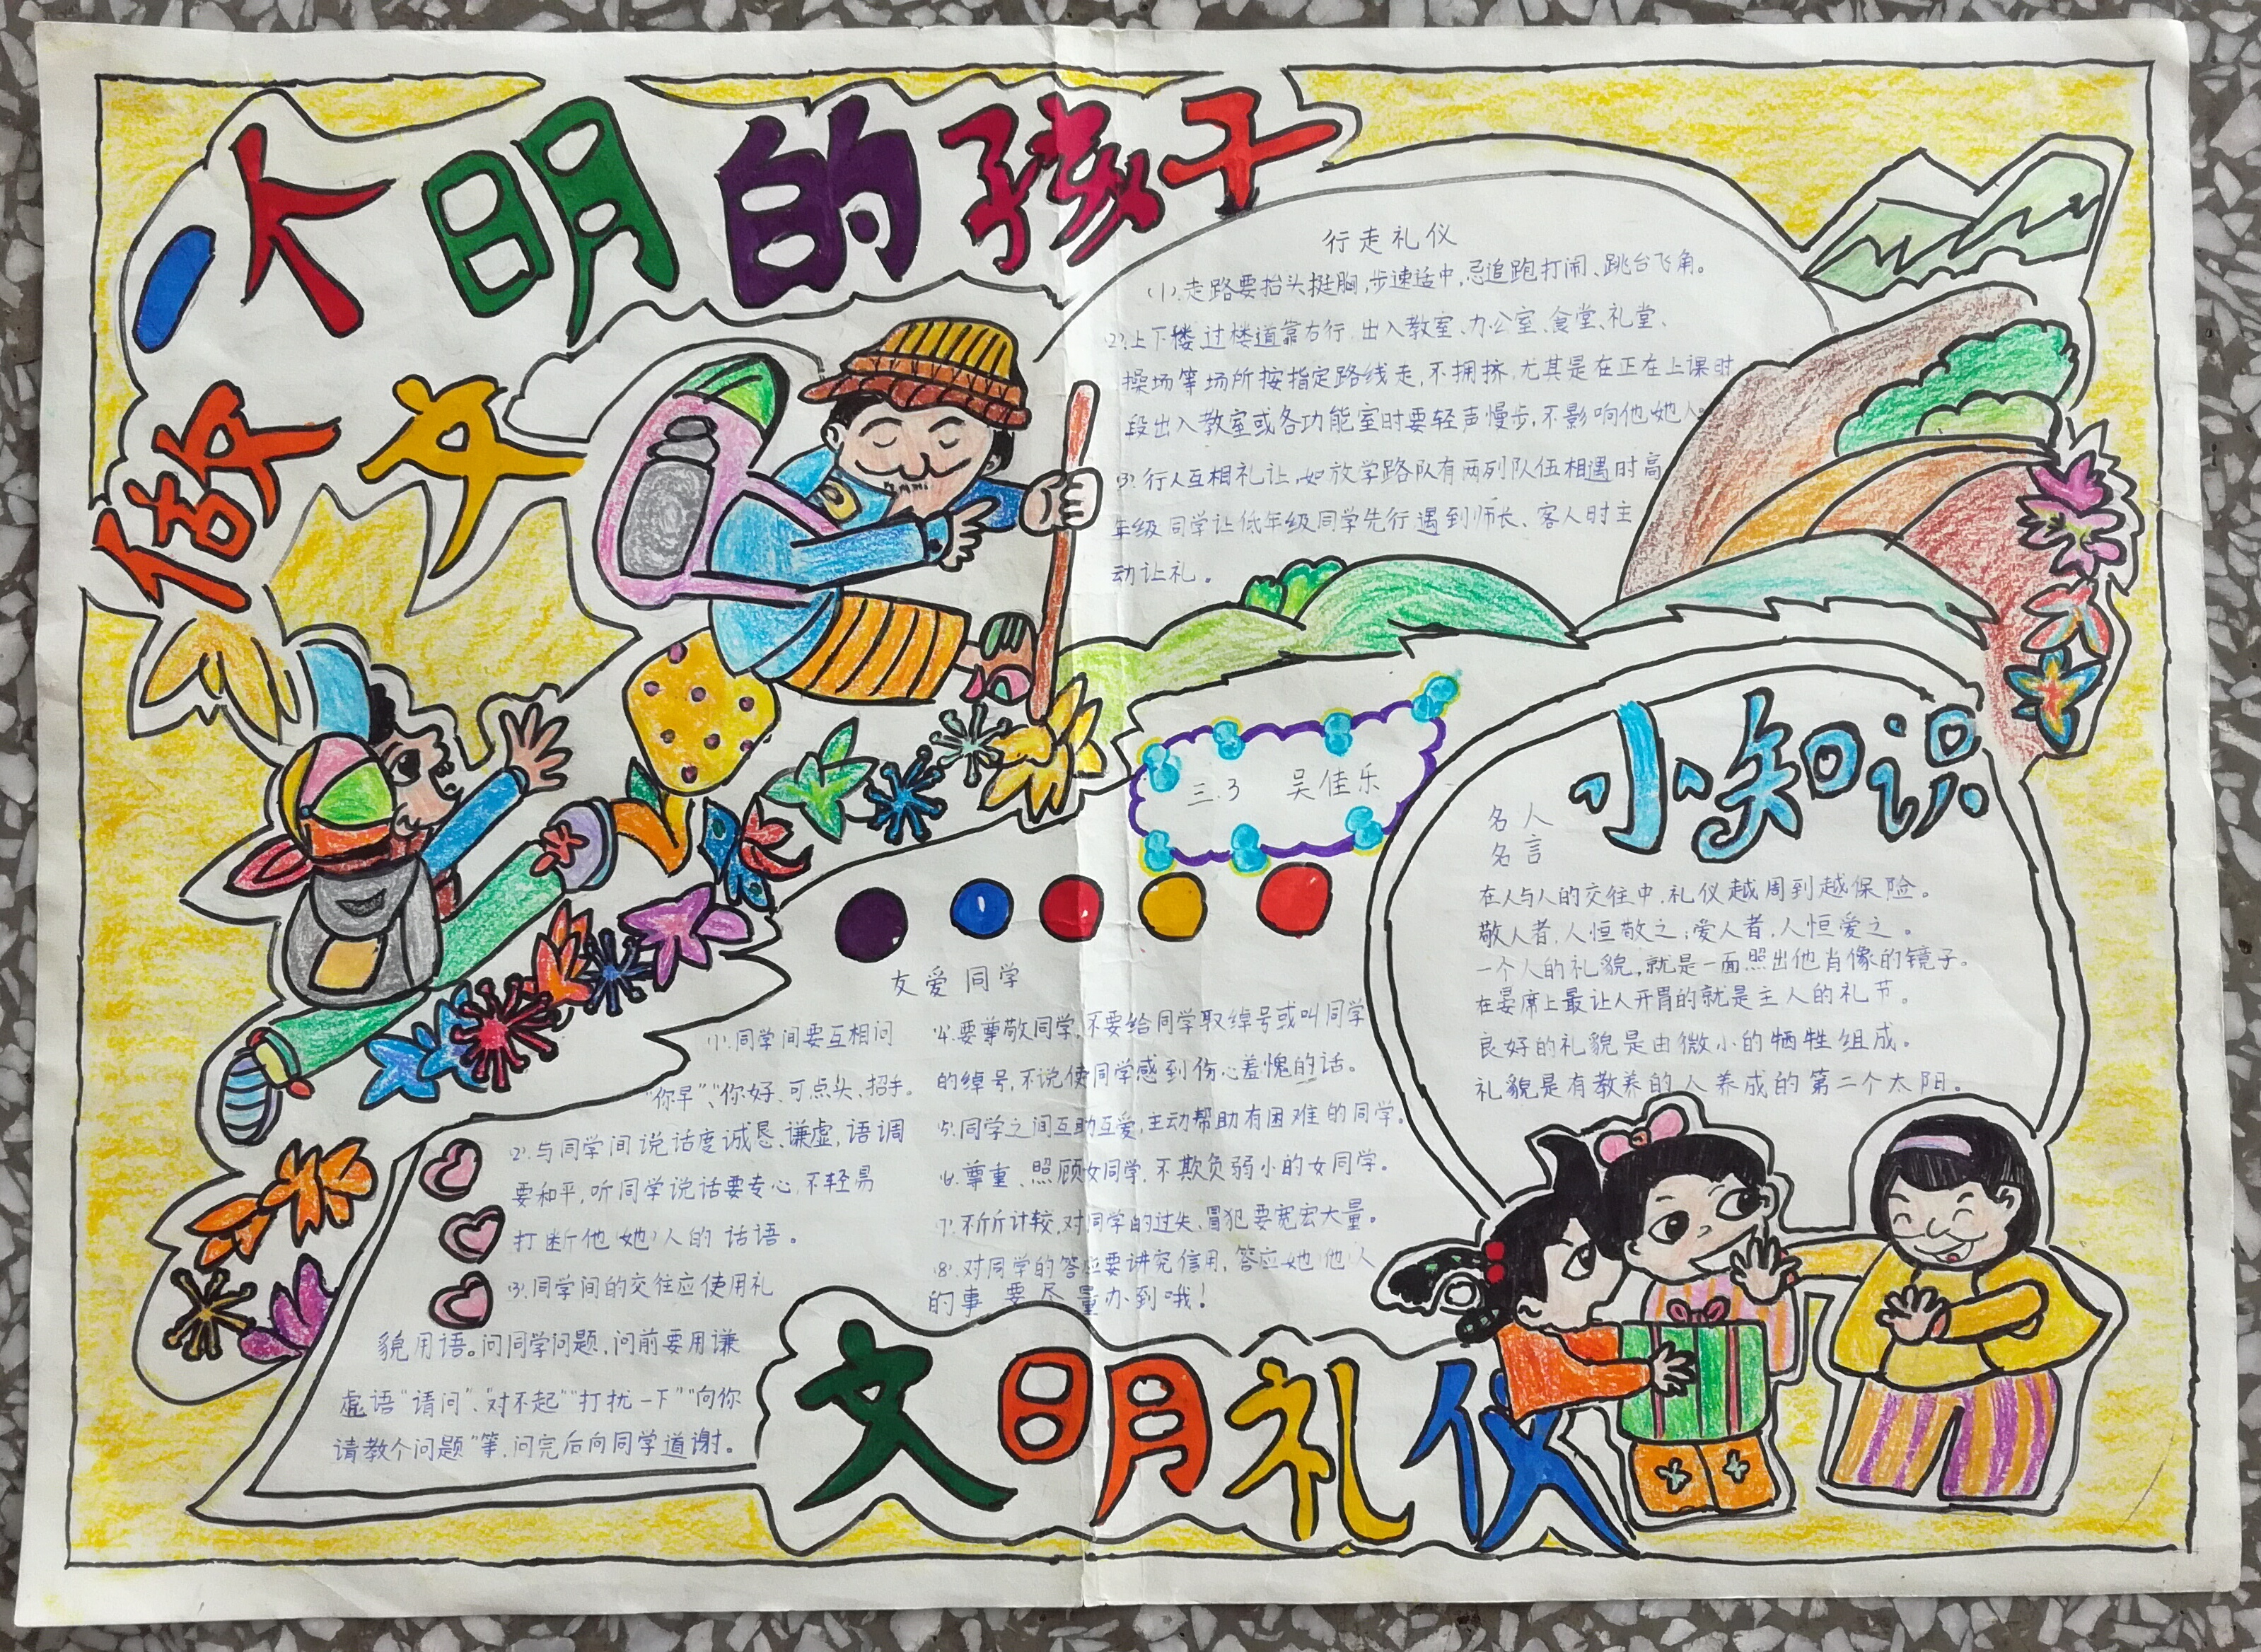 做一个文明的孩子
行走礼仪
(1).走路要抬头挺胸,步速适中,忌追跑打闹、跳台飞角。
(2).上下楼、过楼道靠右行,出入教室、办公室、食堂、礼堂、
操场等场所按指定路线走,不拥挤,尤其是在正在上课时
段出入教室或各功能室时要轻声慢步,不影响他(她)人。
(3).行人互相礼让,如放学路队有两列队伍相遇时高
年级同学让低年级同学先行遇到师长、客人时主
动让礼。
三.3 吴佳乐
小知识
名人
名言
在人与人的交往中,礼仪越周到越保险。
敬人者,人恒敬之;爱人者,人恒爱之。
一个人的礼貌,就是一面照出他肖像的镜子。
在宴席上最让人开胃的就是主人的礼节。
良好的礼貌是由微小的牺牲组成。
礼貌是有教养的人养成的第二个太阳。
友爱同学
(1).同学间要互相问
“你早”、“你好、可点头、招手。
(2).与同学间说话度诚恳、谦虚,语调
要和平,听同学说话要专心,不轻易
打断他(她)人的话语。
(3).同学间的交往应使用礼
貌用语。问同学问题,问前要用谦
虚语“请问”、“对不起”“打扰一下”“向你
请教个问题”等,问完后向同学道谢。
(4).要尊敬同学,不要给同学取绰号或叫同学
的绰号,不说使同学感到伤心羞愧的话。
(5).同学之间互助互爱,主动帮助有困难的同学。
(6).尊重、照顾女同学,不欺负弱小的女同学。
(7).不斤斤计较,对同学的过失、冒犯要宽宏大量。
(8).对同学的答应要讲究信用,答应她(他)人
的事 要尽量办到哦!
文明礼仪